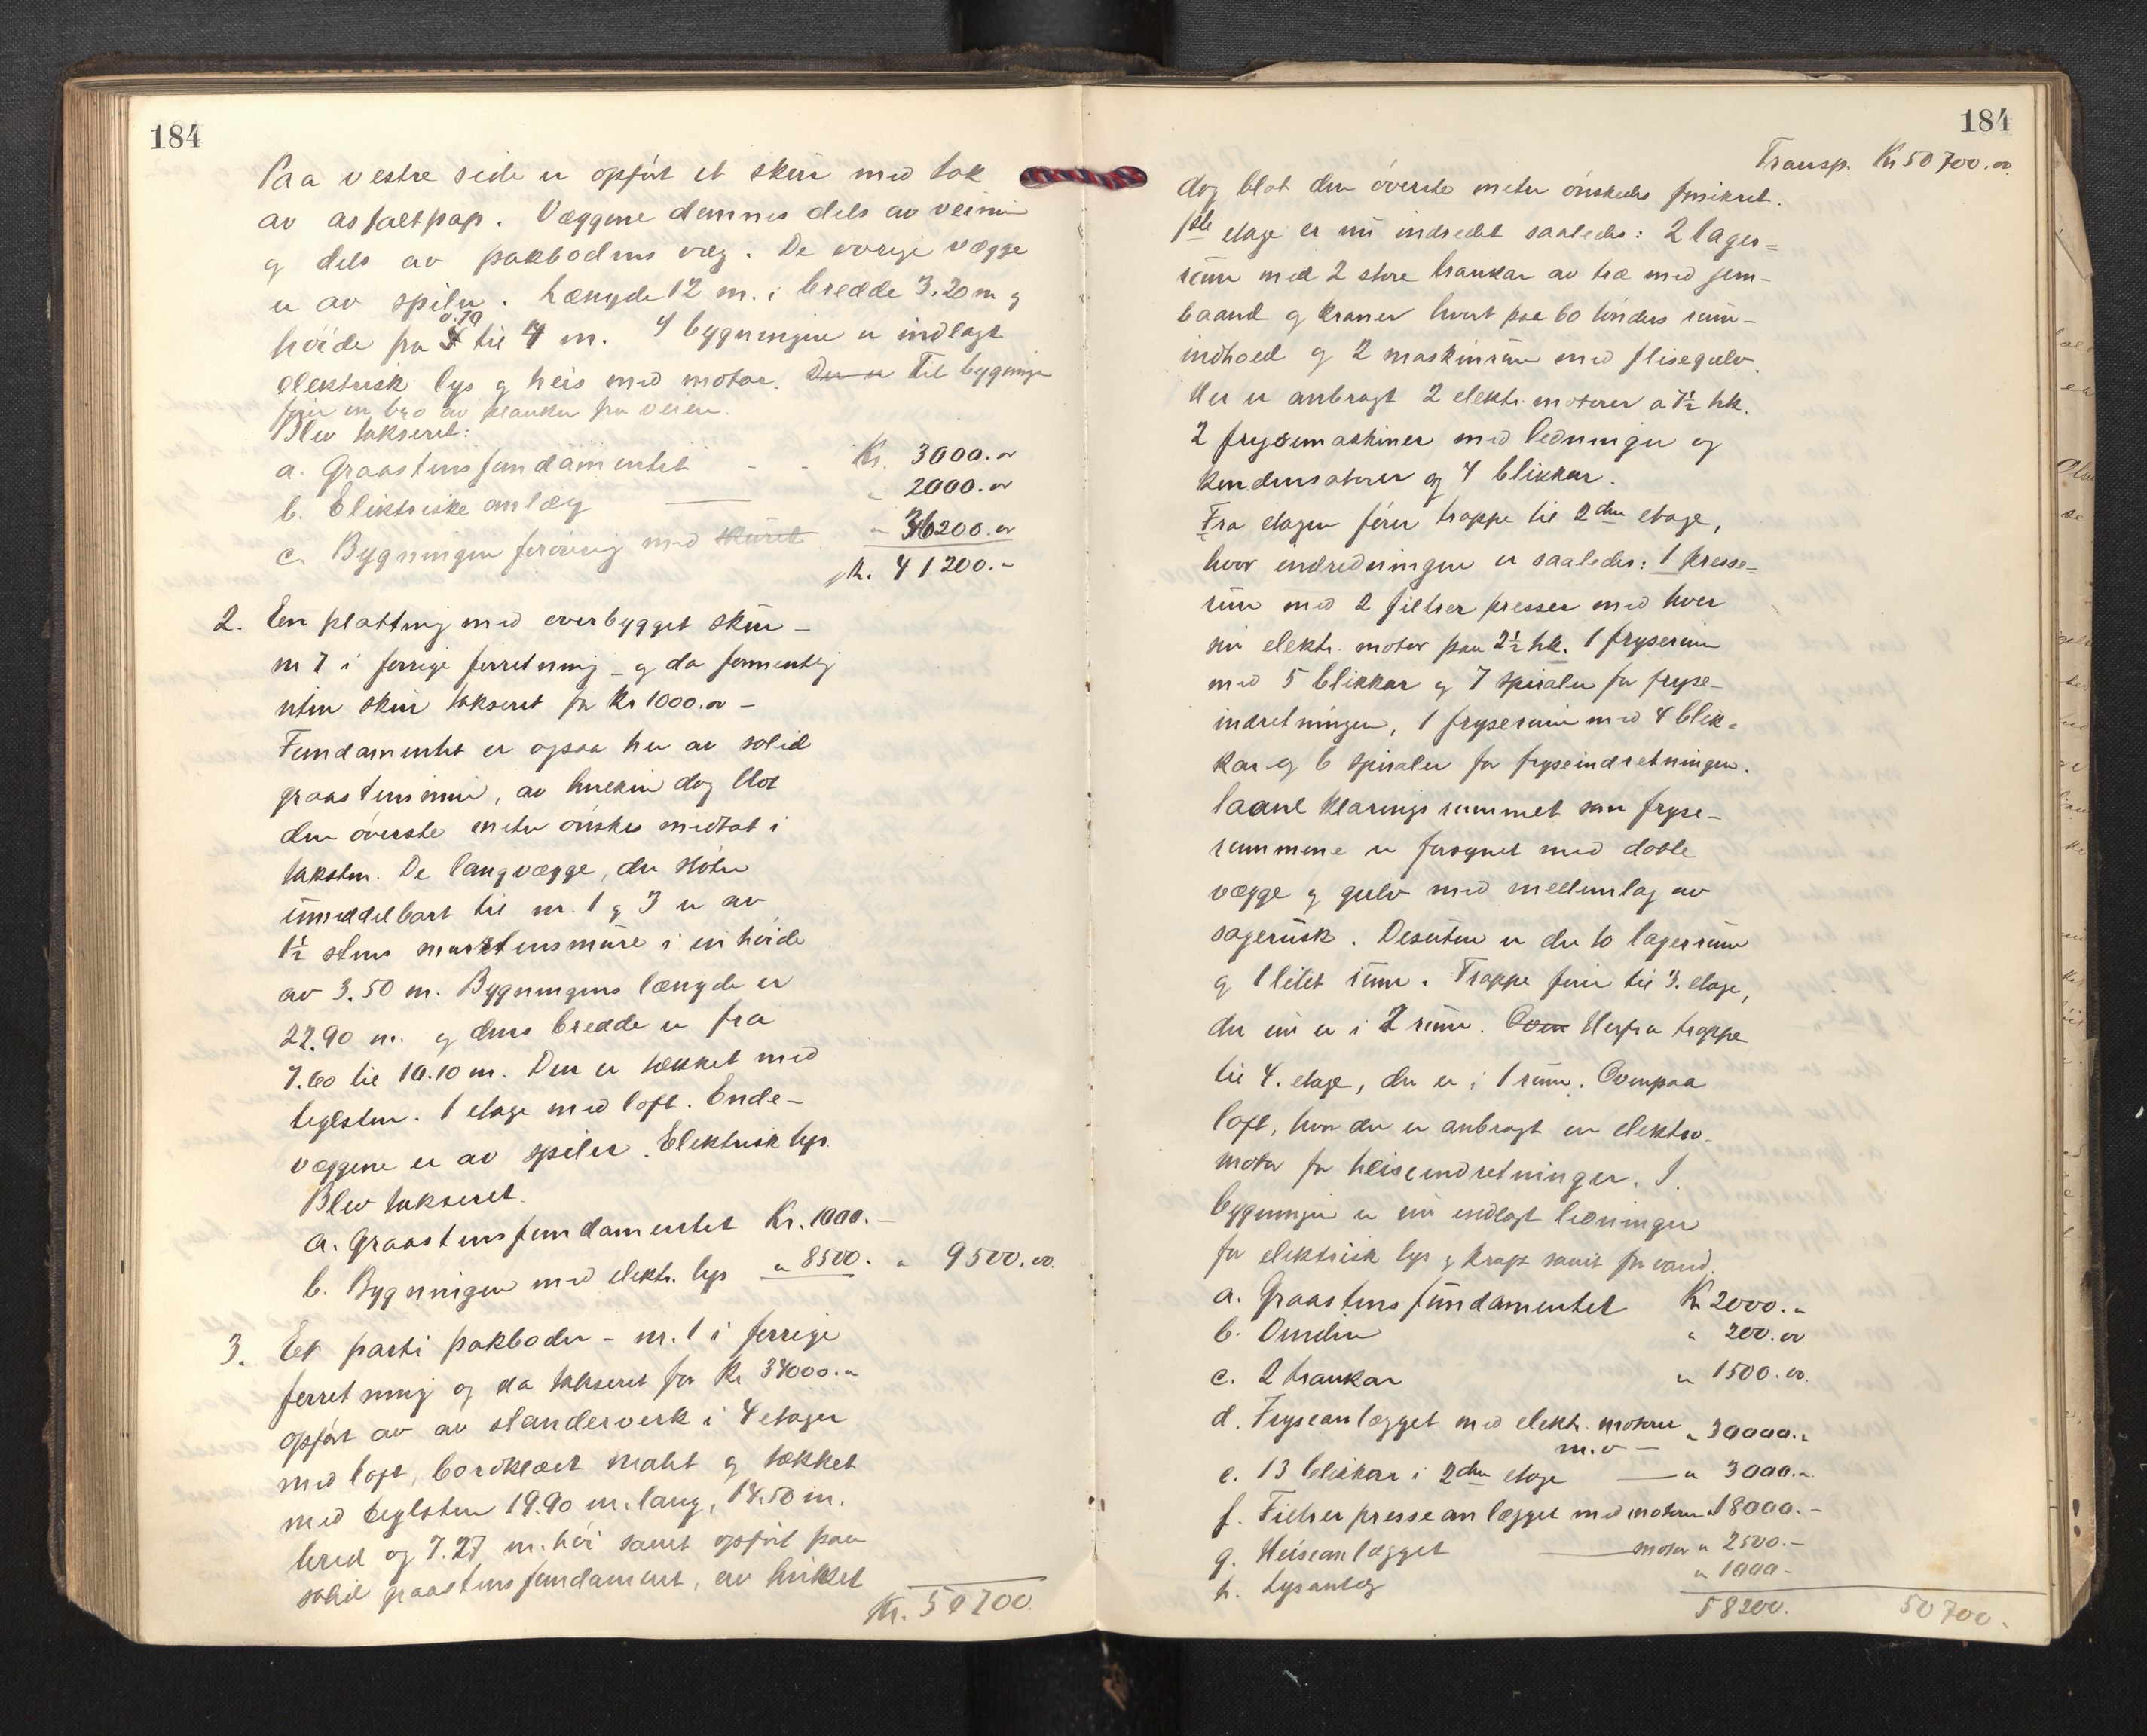 184
Paa vestre side er opført et skur med tak
av asfaltpap. Væggene dannes dels av veimur
og dels av pakbodens væg. De øvrige vægge
er av spiler. Længde 12 m. i bredde 3.20 m og
høide fra 3 til 4 m. I bygningen er indlagt
elektrisk lys og heis med motor. Der er Til bygningen
fører en bro av planker fra veien.
Blev takseret:
a. Graastensfundamentet - - Kr. 3000.oo
b. Elektriske anlæg " 2000.oo
c. Bygningen forøvrig med skuret " 36200.oo
Kr. 41200.-
2. En platting med overbygget skur -
nr 7 i forrige forretning - og da formentlig
uten skur takseret for Kr 1000.oo -
Fundamentet er ogsaa her av solid
graastensmur, av hvilken dog blot
den øverste meter ønskes medtat i
taksten. De langvægge, der støter
umiddelbart til nr. 1 og 3 er av
1½ stens murstensmure i en høide
av 3.50 m. Bygningens længde er
22.90 m. og dens bredde er fra
7.60 til 10.10 m. Den er tækket med
teglsten. 1 etage med loft. Ende-
væggene er av spiler. Elektrisk lys.
Blev takseret.
a. Graastensfundamentet Kr. 1000.-
b. Bygningen med elektr. lys " 8500. " 9500.oo
3. Et parti pakboder - nr. 1 i forrige
forretning og da takseret for Kr 34000.oo
opført av av standerverk i 4 etager
med loft, bordklædt malet og tækket
med teglsten 19.90 m. lang, 14.50 m.
bred og 7.27 m. høi samt opført paa
solid graastensfundament, av hvilket
Kr. 50700.
184
Transp. Kr 50700.oo
dog blot den øverste meter ønskedes forsikret.
1ste etage er nu indredet saaledes: 2 lager-
rum med 2 store trankar av træ med jern-
baand og kraner hvert paa 60 tønders rum-
indhold og 2 maskinrum med flisegulv.
Her er anbragt 2 elektr. motorer a 7½ hk.
2 frysemaskiner med ledninger og
kondensatorer og 4 blikkar.
Fra etagen fører trappe til 2den etage,
hvor indredningen er saaledes: 1 presse-
rum med 2 filtrer presser med hver
sin elektr. motor paa 2½ hk. 1 fryserum
med 5 blikkar og 7 spiraler for fryse-
indretningen, 1 fryserum med 4 blik-
kar og 6 spiraler for fryseindretningen.
Saavel klaringsrummet som fryse-
rummene er forsynet med doble
vægge og gulv med mellemlag av
sagerusk. Desuten er der to lagerrum
og 1 litet rum. Trappe fører til 3. etage,
der nu er i 2 rum. Over Herfra trappe
til 4. etage, der er i 1 rum. Ovenpaa
loft, hvor der er anbragt en elektro-
motor for heiseindretningen. I
bygningen er nu indlagt ledninger
for elektrisk lys og kraft samt for vand.
a. Graastensfundamentet Kr 2000.-
b. " 200.oo
c. 2 trankar " 1500.oo
d. Fryseanlægget med elektr. motorer " 30000.-
m.v -
e. 13 blikkar i 2den etage " 3000.-
f. Filtrerpresseanlægget med motorer " 18000.-
g. Heiseanlægget motor " 2500.-
h. Lysanlæg " 1000-
58200. 50700.-